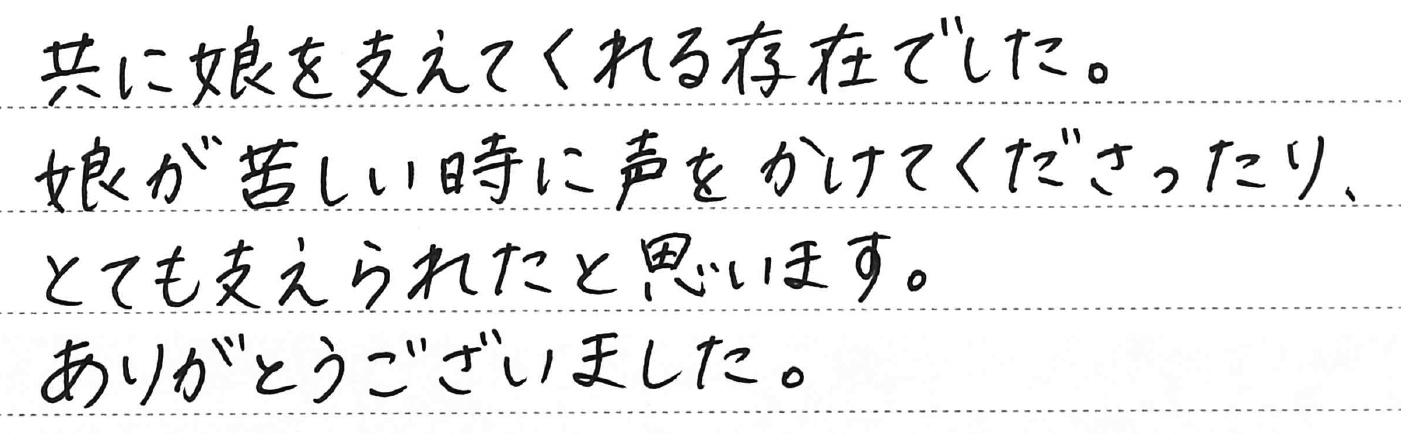 共に娘を支えてくれる存在でした。
娘が苦しい時に声をかけてくださったり、
とても支えられたと思います。
ありがとうございました。